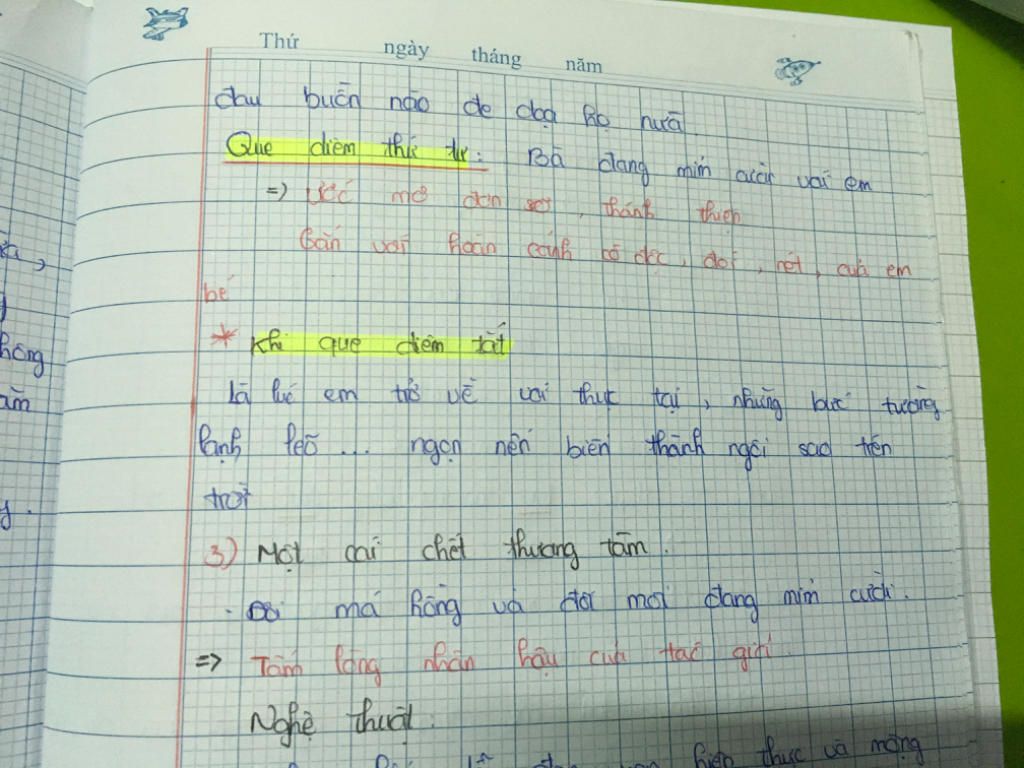 Thứ ngày tháng năm
đau buồn nào đe doạ họ nữa
Que diêm thứ tư: Bà đang mỉm cười với em
=> Ước mơ đơn sơ, thánh thiện
Gắn với hoàn cảnh cô độc, đói, rét, của em
bé
* Khi que diêm tắt
Là lúc em trở về với thực tại, những bức tường
lạnh lẽo... ngọn nến biến thành ngôi sao trên
trời
3) Một cái chết thương tâm.
- Đôi má hồng và đôi môi đang mỉm cười.
=> Tấm lòng nhân hậu của tác giả.
Nghệ thuật:
hiện thực và mộng